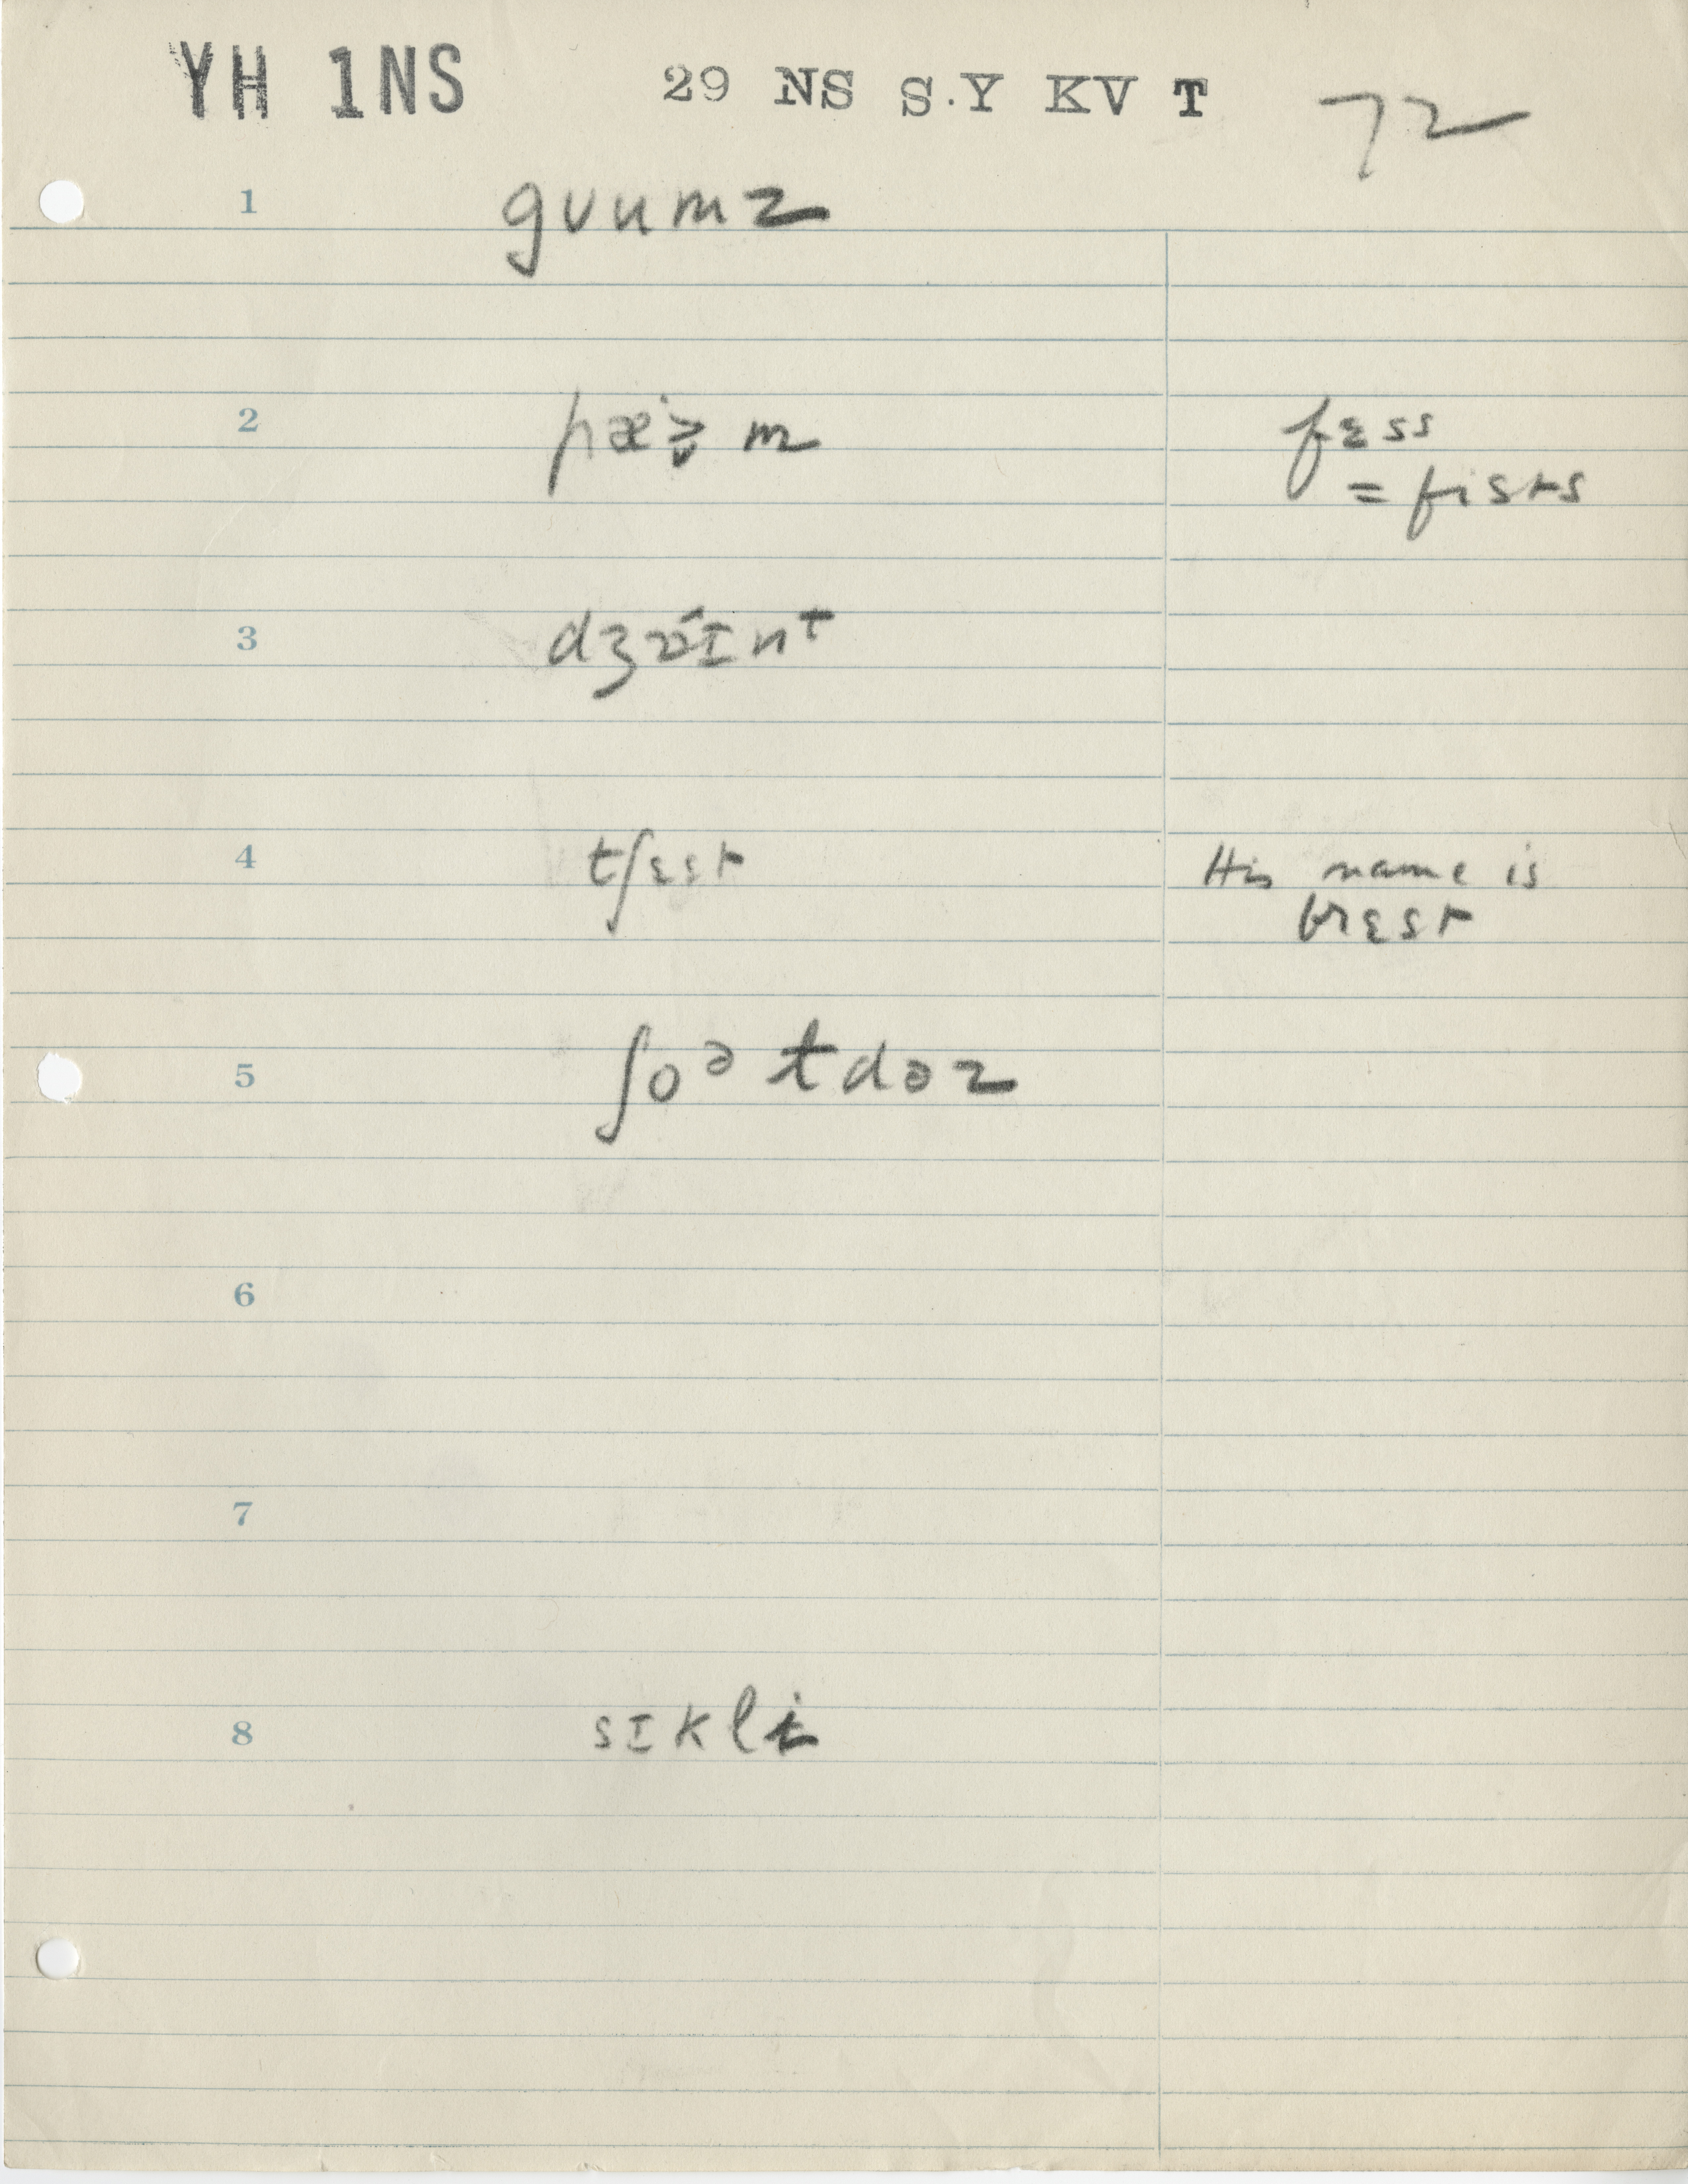 YH 1NS 29 NS S.Y KV T 72
1 gʋumz
2 m fɛss
= fists
3 dʒɒɪnt
4 tʃɛst His name is
brɛst
5 ʃoə tdəz
6
7
8 sɪkli